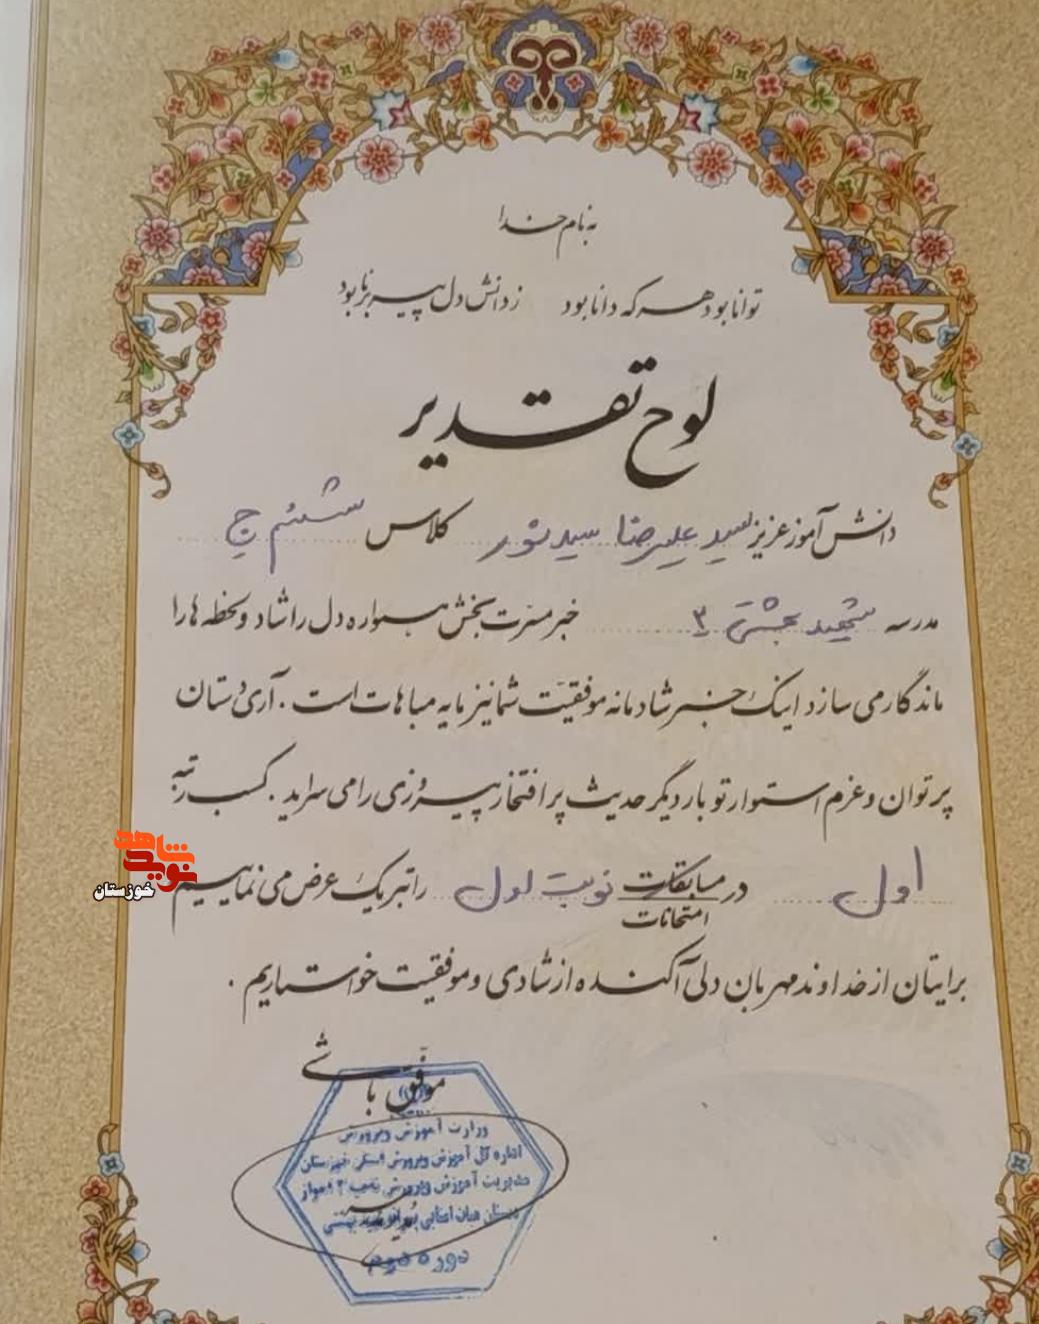 به نام خدا
توانا بود هر که دانا بود ز دانش دل پیر برنا بود
لوح تقدیر
دانش آموز عزیز سید علیرضا سیدنور کلاس ششم ج
مدرسه شهید بهشتی ۳ خبر مسرت بخش همواره دل را شاد و لحظه ها را
ماندگار می سازد اینک خبر شادمانه موفقیت شما نیز مایه مباهات است . آری دستان
پر توان و عزم استوار تو بار دیگر حدیث پر افتخار پیروزی را می سراید . کسب رتبه
اول در مسابقات نوبت اول را تبریک عرض می نماییم
امتحانات
برایتان از خداوند مهربان دلی آکنده از شادی و موفقیت خواستاریم .
موفق باشی
وزارت آموزش و پرورش
اداره کل آموزش و پرورش استان خوزستان
مدیریت آموزش و پرورش ناحیه ۳ اهواز
دبستان هیات امنایی پسرانه شهید بهشتی
دوره دوم
مدیر مدرسه
نوید شاهد
خوزستان